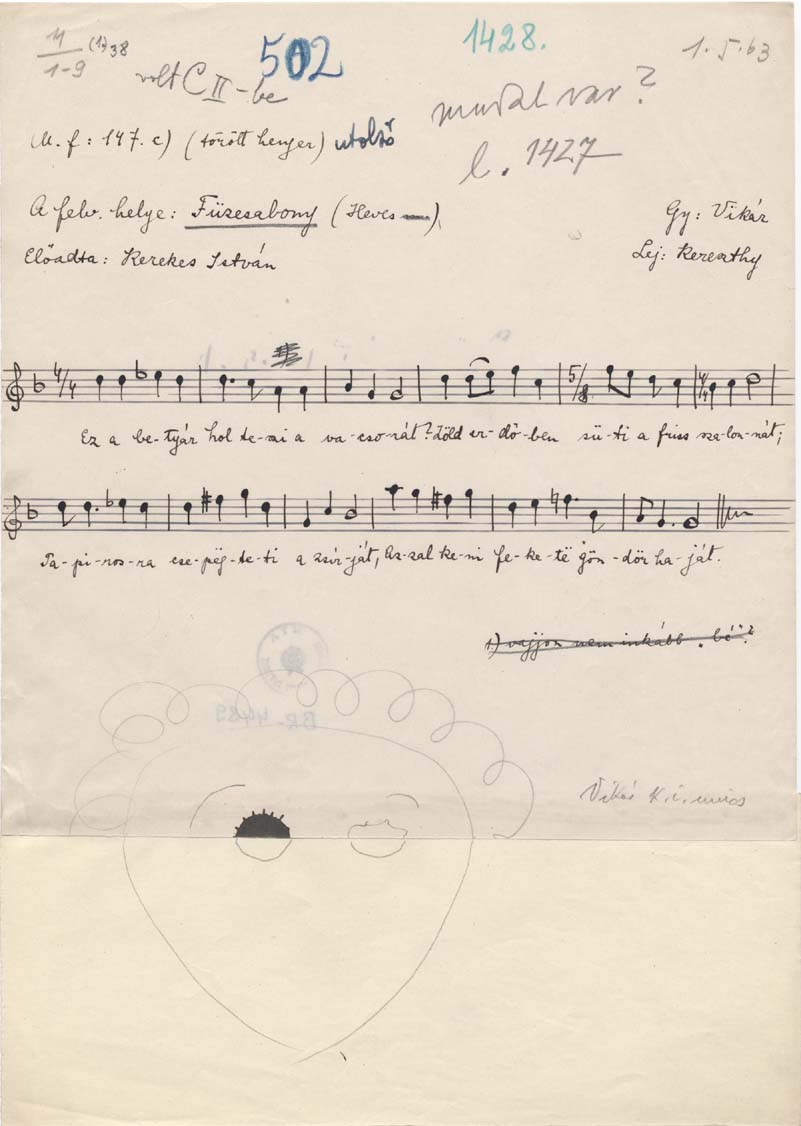 11/1-9 (1.)38
volt C II-be
502
1428.
1.5.63
l. 1427
M. f: 147. c) (törött henger) utolsó
A felv. helye: Füzesabony (Heves)
Gy: Vikár
Előadta: Kerekes István
Lej: Kereszthy
4/4 5/8 4/4
Ez a be-tyár hol te-szi a va-cso-rát? Zöld er-dő-ben sü-ti a friss sza-lon-nát;
Pa-pi-ros-ra cse-pëg-te-ti a zsír-ját, Az-zal ke-ni fe-ke-të gön-dör ha-ját.
1) vajjon nem inkább „bé"?
BR-4489